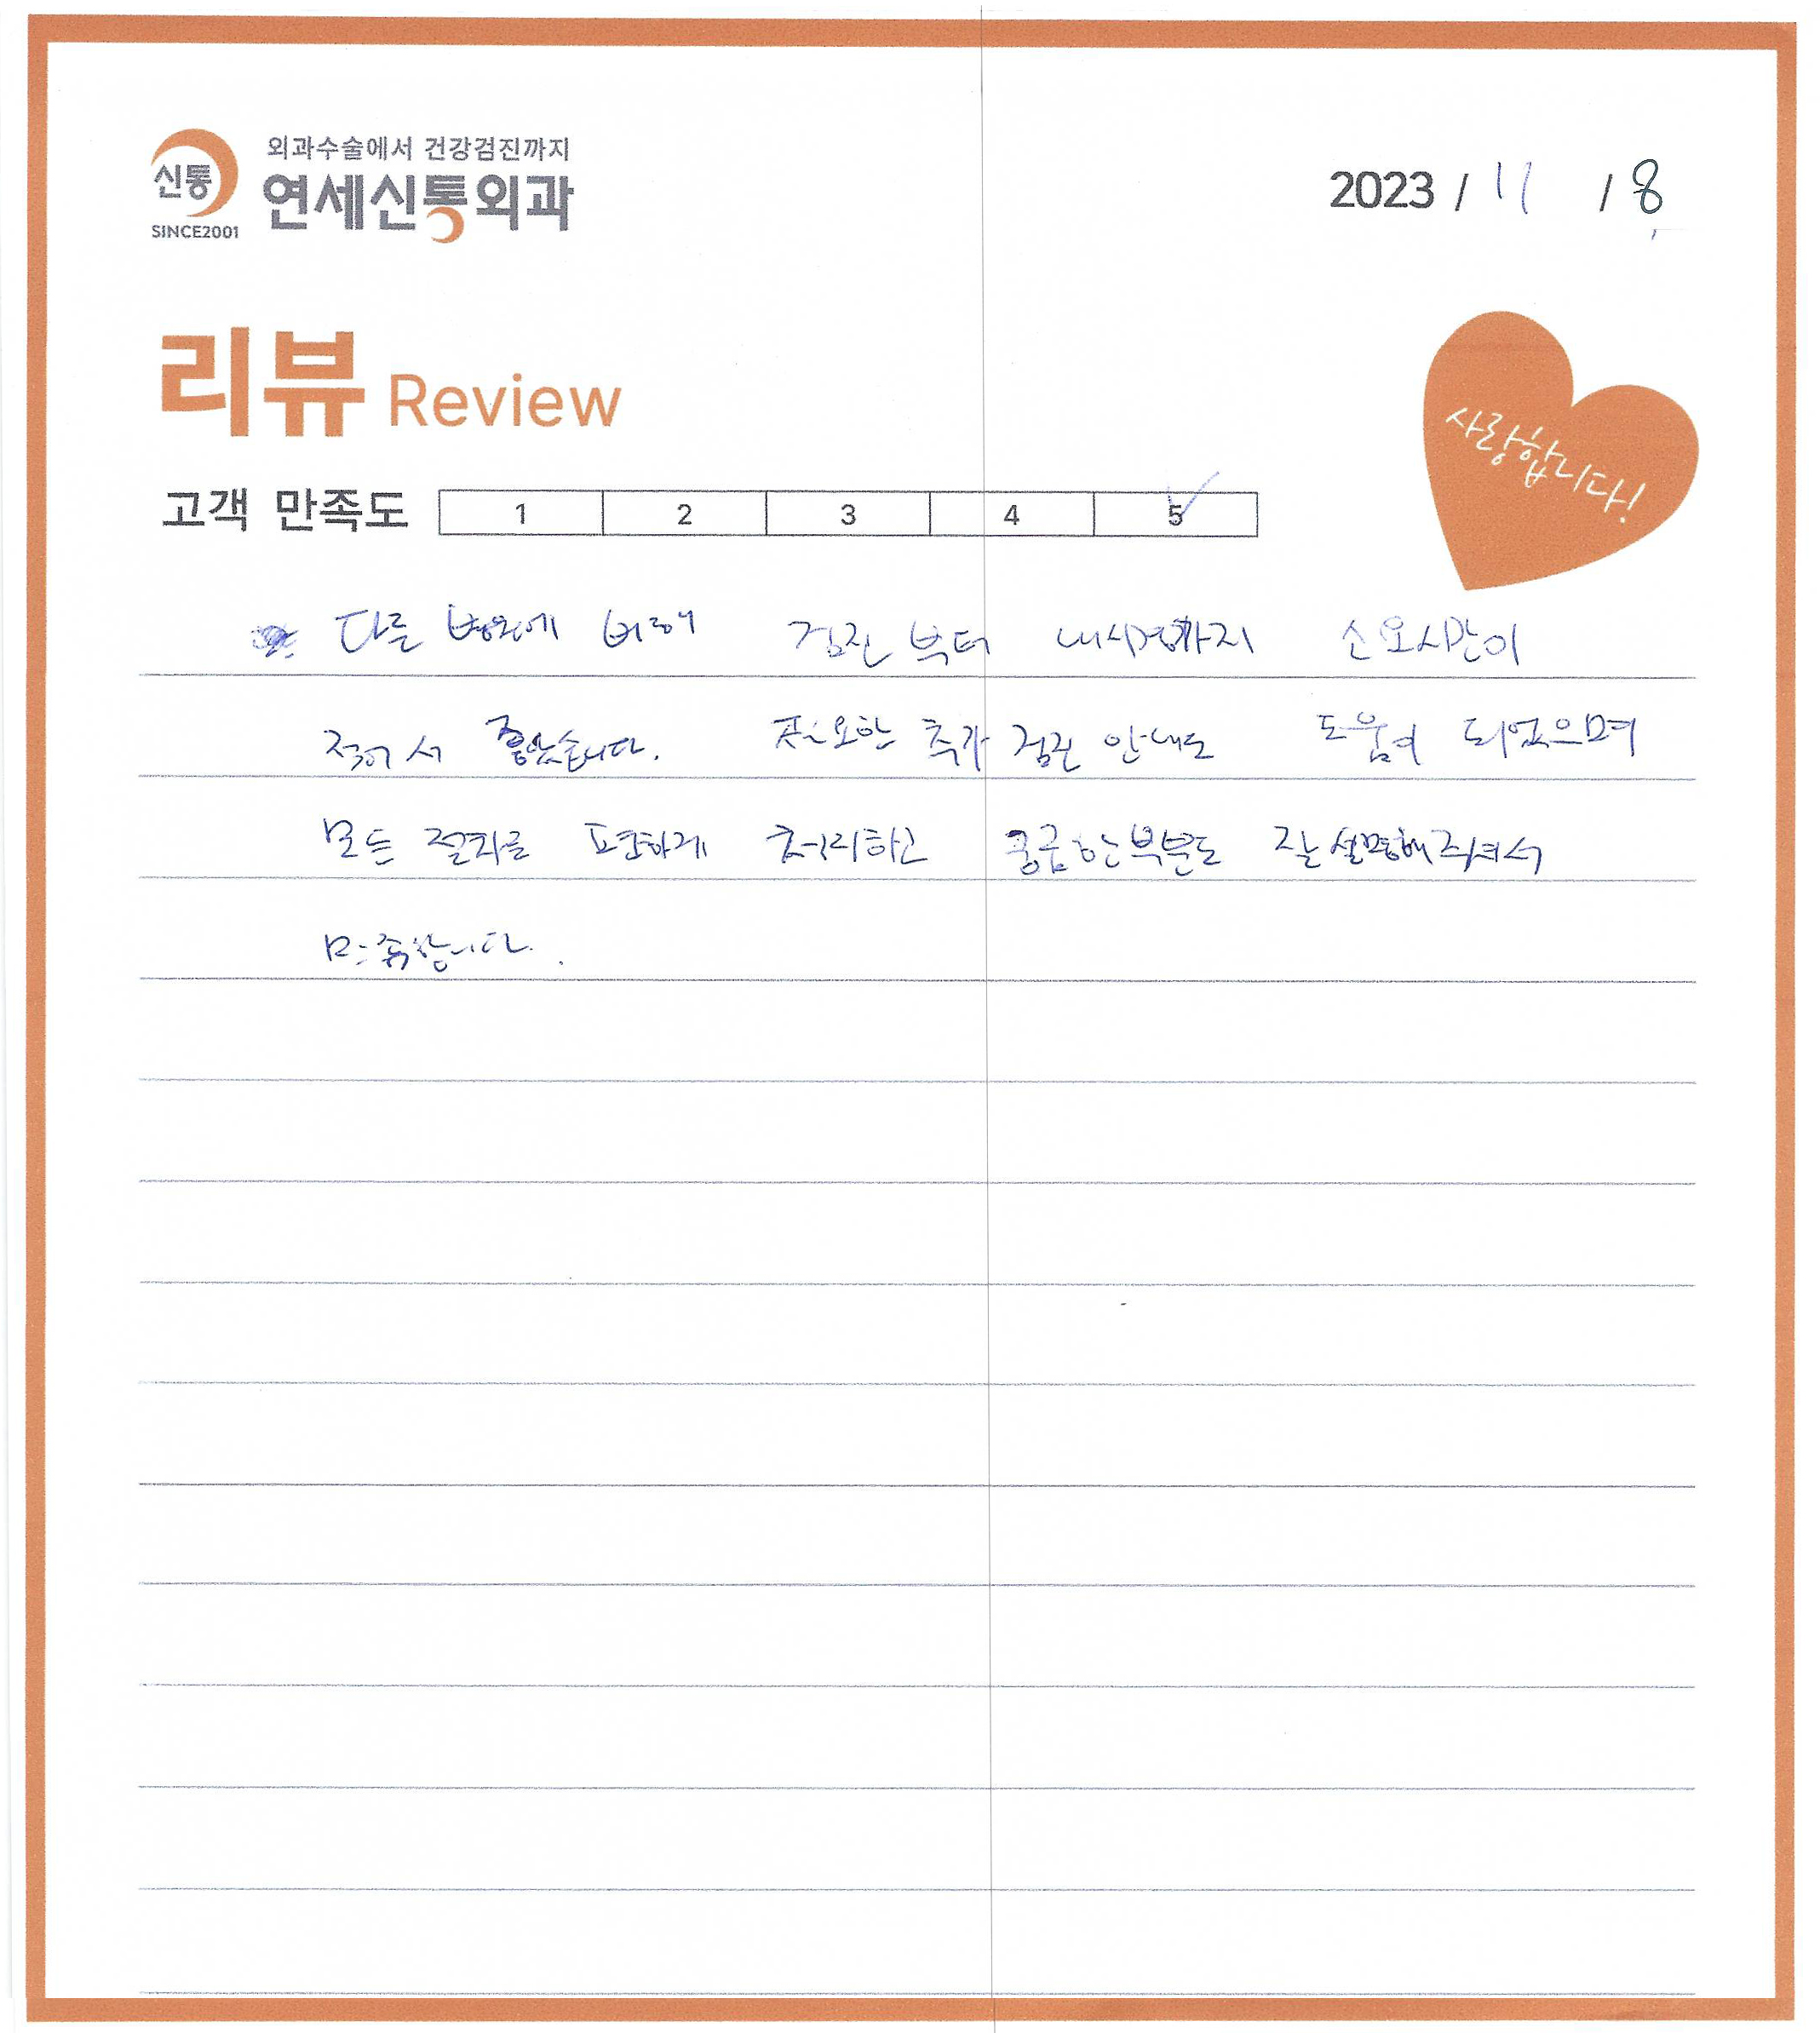 신통
SINCE2001
외과수술에서 건강검진까지
연세신통외과
2023 / 11 / 8
리뷰 Review
사랑합니다!
고객 만족도 1 2 3 4 5
다른 병원에 비해 검진부터 내시경까지 소요시간이
적어서 좋았습니다. 필요한 추가 검진 안내도 도움이 되었으며
모든 절차를 편하게 처리하고 궁금한 부분도 잘 설명해주셔서
만족합니다.